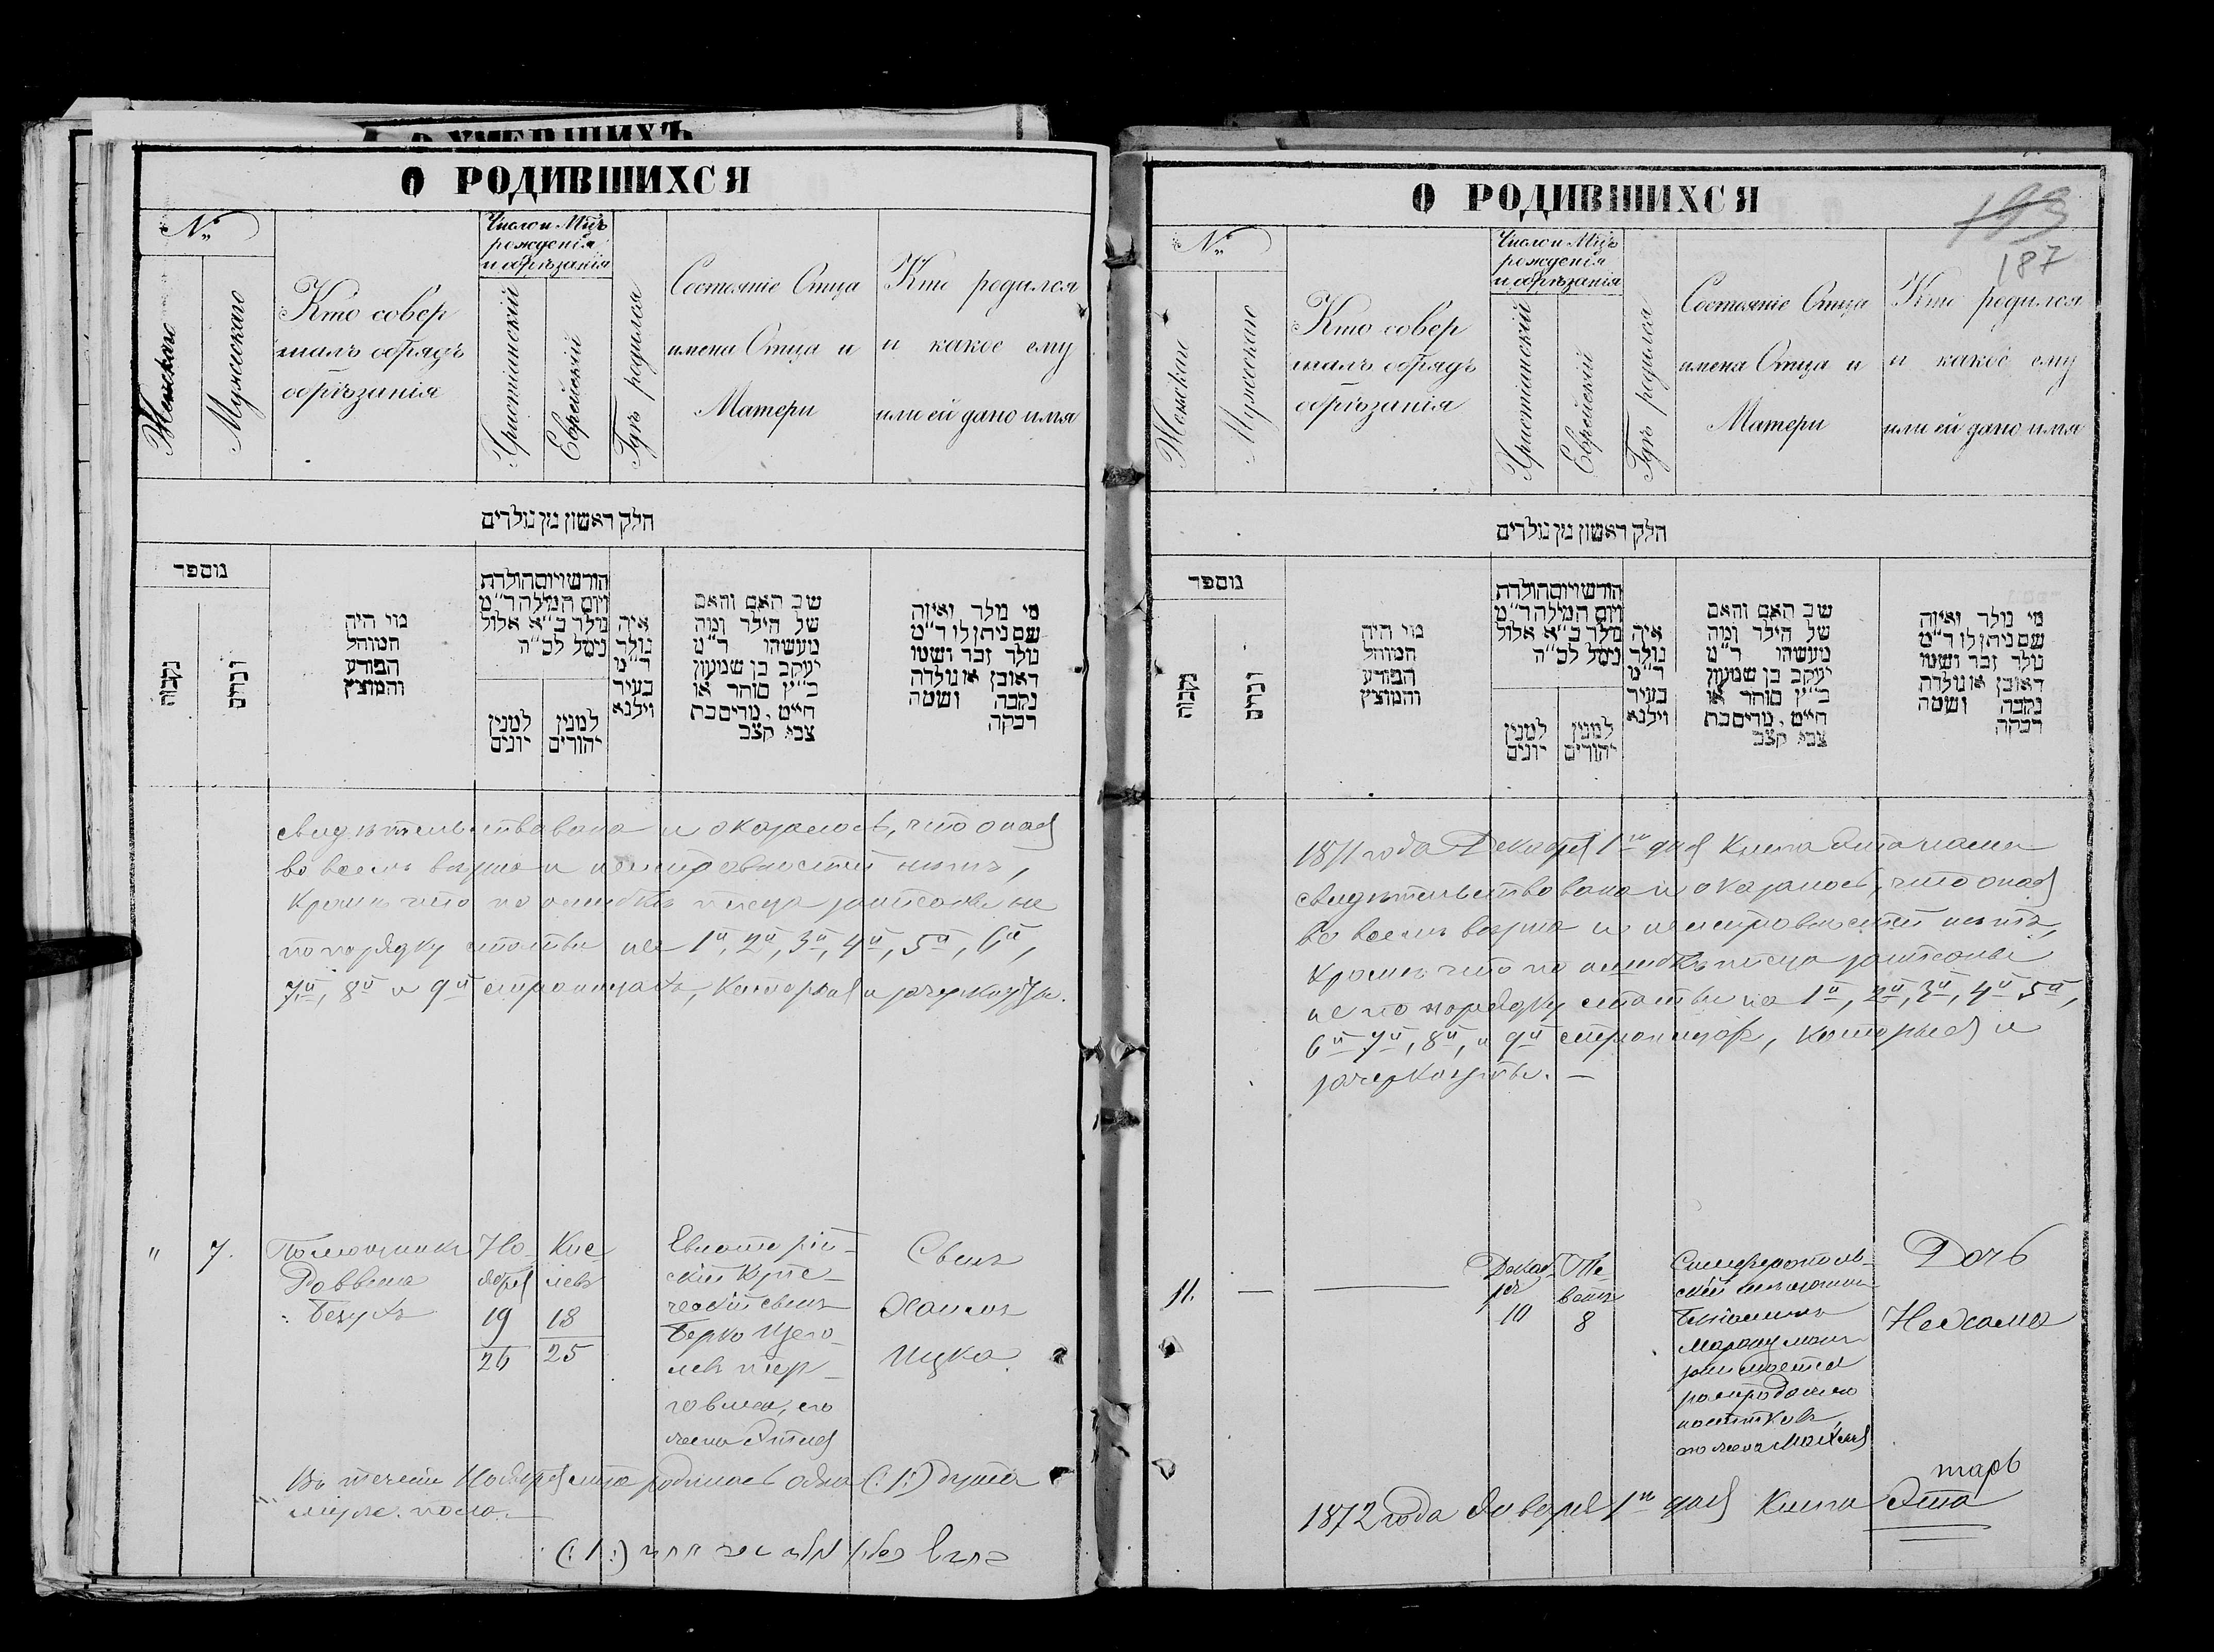 О УМЕРШИХЪ
О РОДИВШИХСЯ
№
Женскаго
Мужескаго
Кто совер
шалъ обрядъ
обрѣзанія
Число и Мцъ
рожденія
и обрѣзанія
Христіанскій
Еврейскій
Гдѣ родился
Состояніе Отца
имена Отца и
Матери
Кто родился
и какое ему
или ей дано имя
חלק ראשון מן נולדים
מוספר
נקבות
זכרים
מוי היה
המוהל
הפורע
והמוצץ
חודש ויום הולדת
ויום המילה ד״מ
נולד כ״א אלול
נימל לס״ה
למנין
יונים
למנין
יהודים
איה
נולד
ד״מ
בעיר
וילנא
שב האם והאם
של הילד ומה
מעשהו ד״מ
יעקב בן שמעון
כ״ץ סוחר או
חייט, מרים בת
צבי קצב
מי נולד ואיזה
שם ניתן לו ד״מ
נולד זכר ושמו
ראובן או נולדה
נקבה ושמה
רבקה
свидѣтельствована и оказалось, что оная
во всемъ вѣрна и неисправностей нѣтъ,
кромѣ что по ошибкѣ писца записаны не
по порядку статьи на 1й, 2й, 3й, 4й, 5й, 6й,
7й, 8й и 9й страницахъ, которыя и зачеркнуты.
" 7.
Помощникъ
Раввина
Безухъ
Но-
ября
19
26
Кис
левъ
18
25
Евпаторій-
скій купе-
ческій сынъ
Берко Щего-
левъ тор-
говлею, его
жена Этля
Сынъ
Хаимъ
Ицко
Въ теченіи Ноября м-ца родилось одна (:1:) душа
муж. пола.
О РОДИВШИХСЯ
193
187
№
Женскаго
Мужескаго
Кто совер
шалъ обрядъ
обрѣзанія
Число и Мцъ
рожденія
и обрѣзанія
Христіанскій
Еврейскій
Гдѣ родился
Состояніе Отца
имена Отца и
Матери
Кто родился
и какое ему
или ей дано имя
חלק ראשון מן נולדים
מוספר
נקבות
זכרים
מוי היה
המוהל
הפורע
והמוצץ
חודש ויום הולדת
ויום המילה ד״מ
נולד כ״א אלול
נימל לס״ה
למנין
יונים
למנין
יהודים
איה
נולד
ד״מ
בעיר
וילנא
שב האם והאם
של הילד ומה
מעשהו ד״מ
יעקב בן שמעון
כ״ץ סוחר או
חייט, מרים בת
צבי קצב
מי נולד ואיזה
שם ניתן לו ד״מ
נולד זכר ושמו
ראובן או נולדה
נקבה ושמה
רבקה
1871 года Декабря 1го дня Книга эта нами
свидѣтельствована и оказалось, что оная
во всемъ вѣрна и неисправностей нѣтъ,
кромѣ что по ошибкѣ писца записаны
не по порядку статьи на 1й, 2й, 3й, 4й 5й,
6й 7й, 8й, и 9й страницахъ, которыя и
зачеркнуты. —
11. —
Декаб-
ря
10
Те-
ветъ
8
Симферополь-
скій мѣщанинъ
Беніаминъ
занимается
его жена
Дочь
Нехама
1872 года Января 1го дня Книга эта